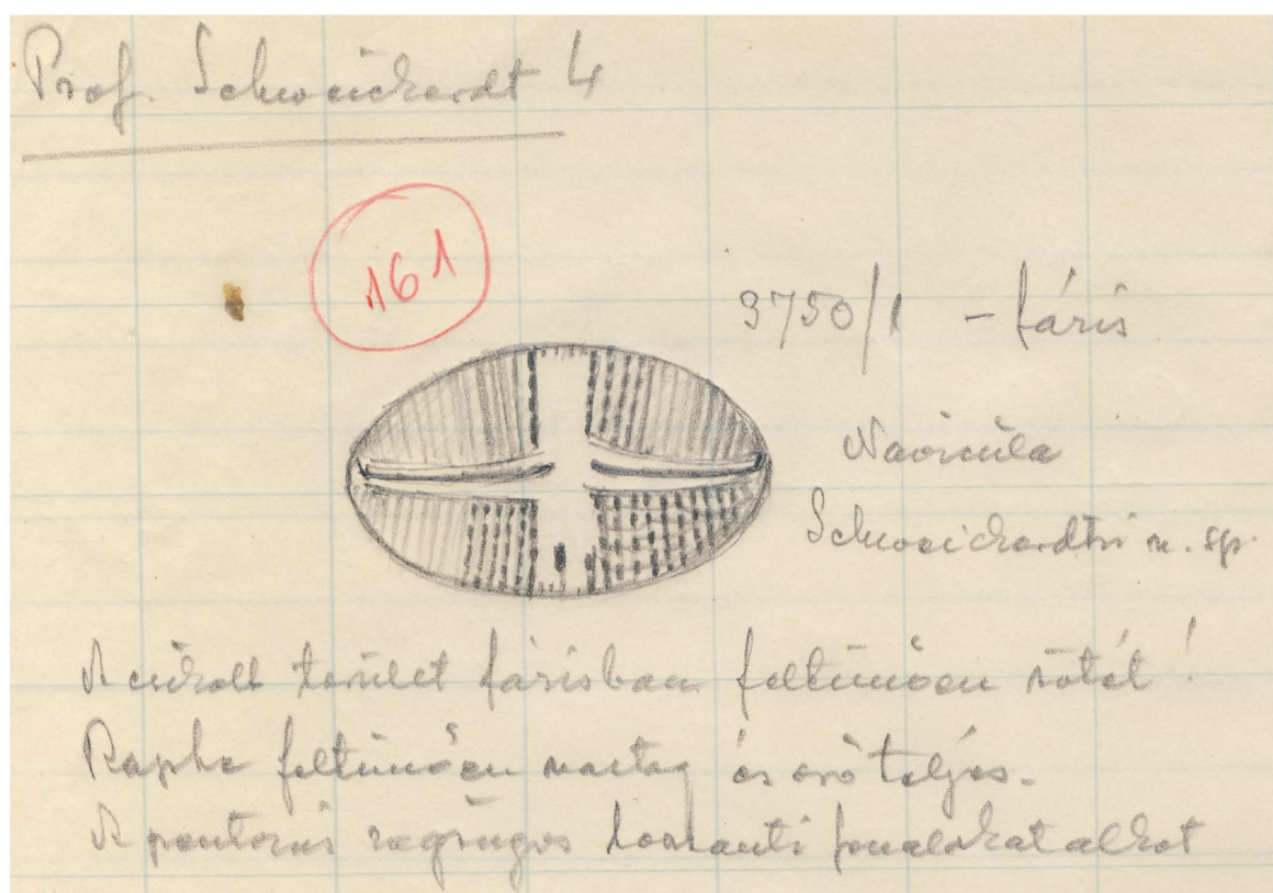 Prof. Schweickerdt 4
161
3750/1 - fázis
Navicula
Schweickerdtii n. sp.
A csíkolt terület fázisban feltünően sötét!
Raphe feltünően vastag és erőteljes.
A pontozás hosszanti fonalakat alkot